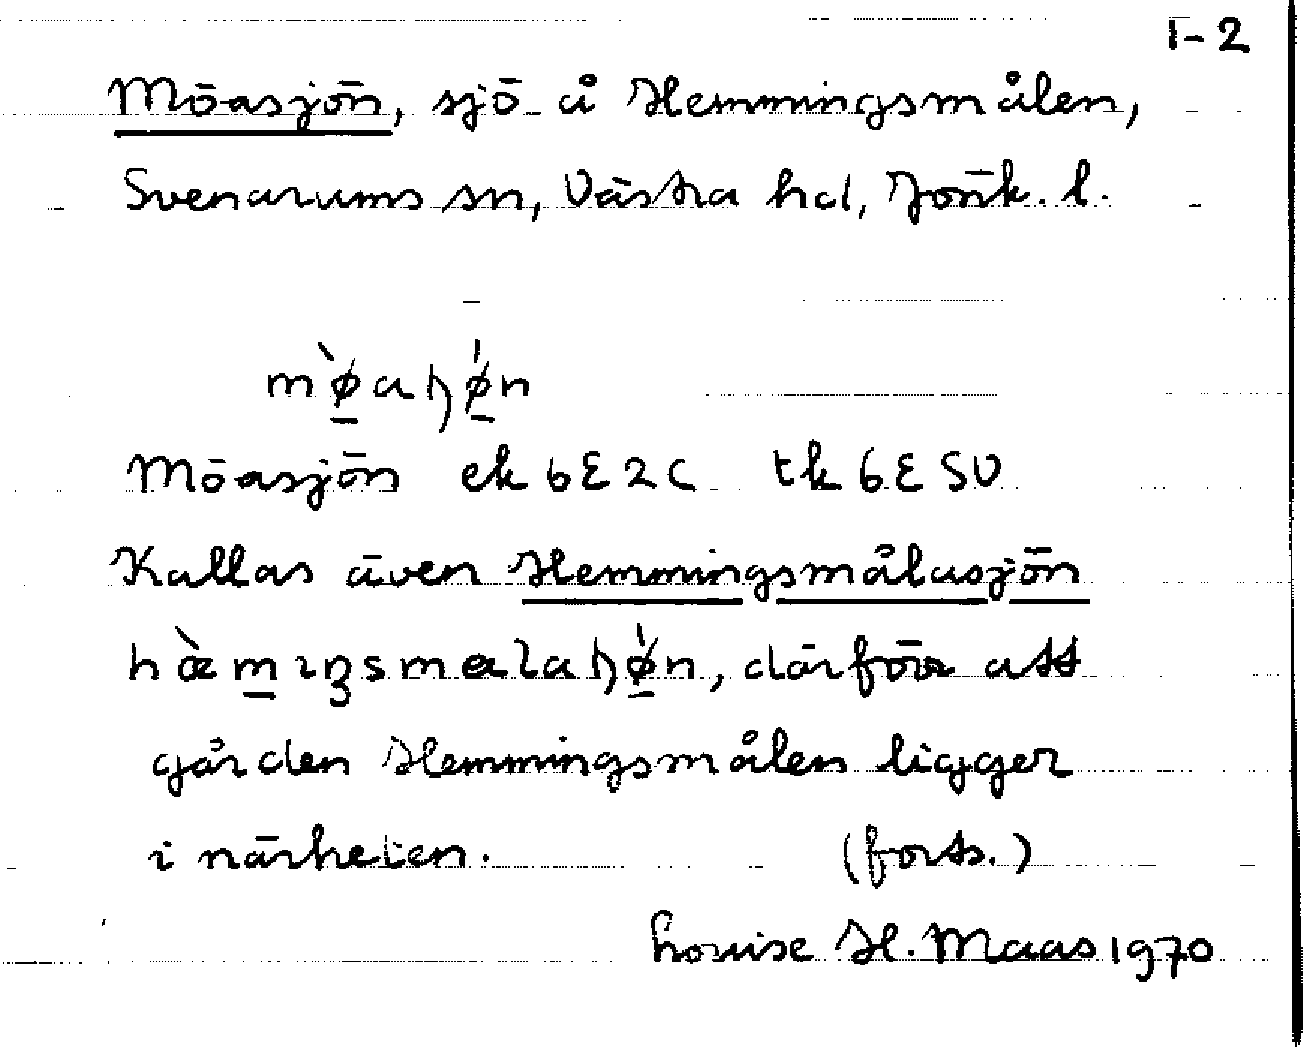 I-2
Möasjön, sjö å Hemmingsmålen,
Svenarums sn, Västra hd, Jönk. l.
m ø̀ a ɧ ǿ n
Möasjön ek 6E2c tk 6E SV
Kallas även Hemmingsmålasjön
h æ̀ m ɪ ŋ s m a l a ɧ ǿ n, därför att
gården Hemmingsmålen ligger
i närheten. (forts.)
Louise H. Maas 1970